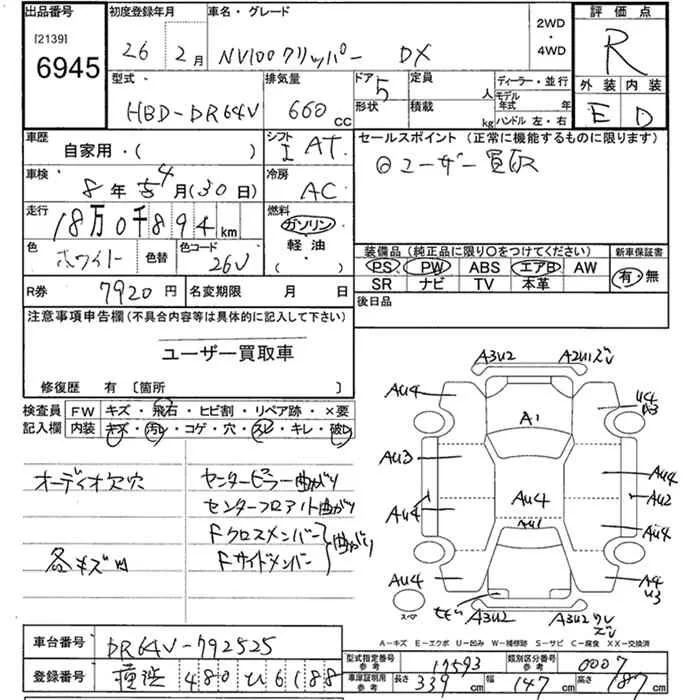 出品番号
[2139]
6945
初度登録年月
26 2月
車名・グレード
NV100クリッパー DX
2WD
・
4WD
評価点
R
外装 内装
E D
型式
HBD-DR64V
排気量
660 cc
ドア 5
形状
定員
人
積載
kg
ディーラー・並行
モデル
年式 年
ハンドル 左・右
車歴
自家用・( )
シフト
I AT
車検
8年 4月(30日)
冷房
AC
走行
18万0千894km
燃料
ガソリン
軽油
( )
色
ホワイト
色替
色コード
26U
セールスポイント(正常に機能するものに限ります)
ユーザー買取
装備品(純正品に限り〇をつけてください)
PS PW ABS エアB AW
SR ナビ TV 本革
新車保証書
有・無
R券 7920円
名変期限 月 日
後日品
注意事項申告欄(不具合内容等は具体的に記入して下さい)
ユーザー買取車
修復歴 有〔箇所 〕
検査員
記入欄
FW キズ・飛石・ヒビ割・リペア跡・×要
内装 キズ・汚レ・コゲ・穴・スレ・キレ・破レ
オーディオ欠穴
各キズ凹
センターピラー曲がり
センターフロア下曲がり
Fクロスメンバー
Fサイドメンバー
曲がり
A3U2
A2U1ズレ
AU4
U4
A3
A1
AU3
AU4
AU4
AU4
AU2
AU1
AU4
AU4
A4
U3
スペア
モビ
A3U2
A3U2
A-キズ E-エクボ U-凹み W-補修跡 S-サビ C-腐食 XX-交換済
車台番号
DR64V-792525
登録番号
480 ひ 6188
型式指定番号
参考
17593
類別区分番号
参考
0007
車庫証明用
参考
長さ 339cm
幅 147cm
高さ 187cm